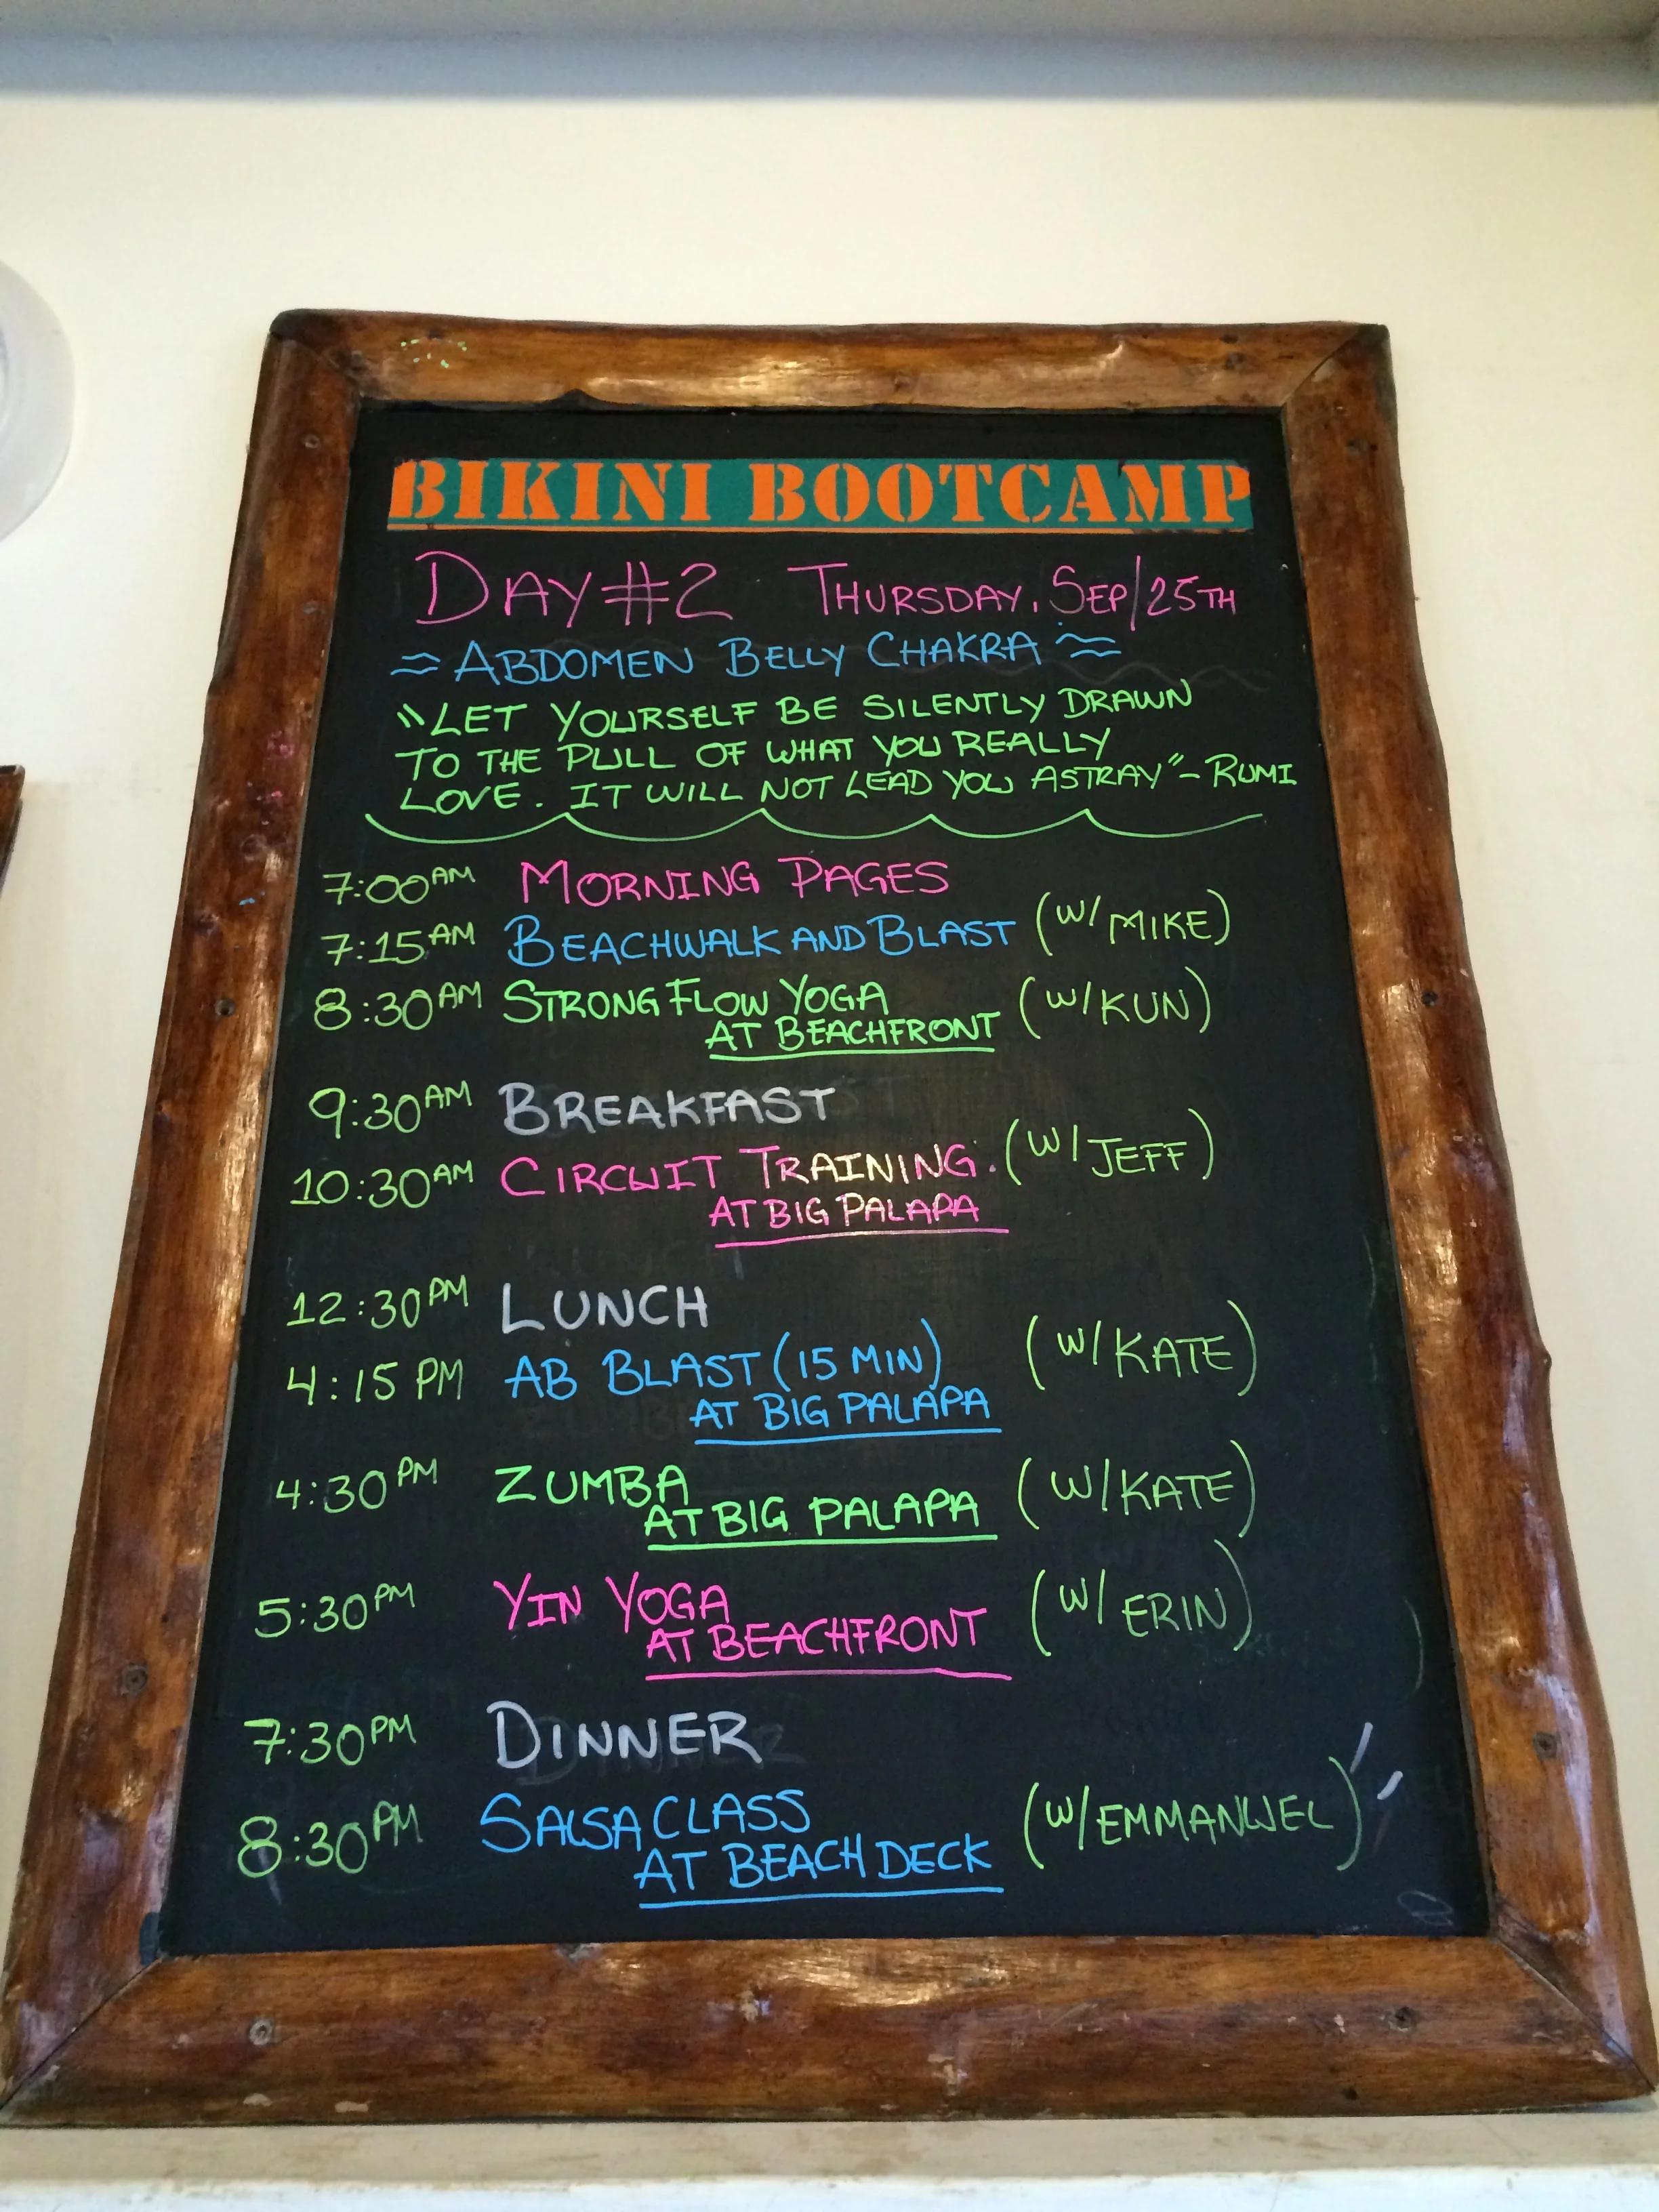 BIKINI BOOTCAMP
DAY #2 THURSDAY, SEP/25TH
≈ ABDOMEN BELLY CHAKRA ≈
"LET YOURSELF BE SILENTLY DRAWN
TO THE PULL OF WHAT YOU REALLY
LOVE. IT WILL NOT LEAD YOU ASTRAY" - RUMI
7:00 AM MORNING PAGES
7:15 AM BEACHWALK AND BLAST (W/ MIKE)
8:30 AM STRONG FLOW YOGA (W/ KUN)
AT BEACHFRONT
9:30 AM BREAKFAST
10:30 AM CIRCUIT TRAINING. (W/ JEFF)
AT BIG PALAPA
12:30 PM LUNCH
4:15 PM AB BLAST (15 MIN) (W/ KATE)
AT BIG PALAPA
4:30 PM ZUMBA (W/ KATE)
AT BIG PALAPA
5:30 PM YIN YOGA (W/ ERIN)
AT BEACHFRONT
7:30 PM DINNER
8:30 PM SALSA CLASS (W/ EMMANUEL)
AT BEACH DECK